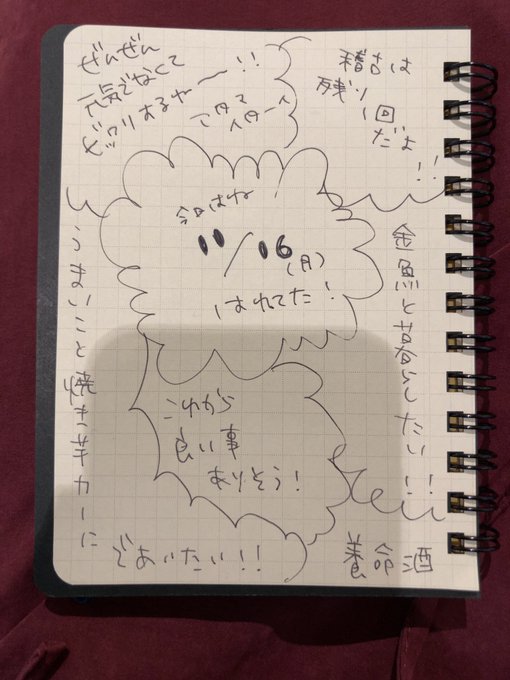 ぜんぜん
元気でなくて
ビックリするわー!!
稽古は
残り
1回
だよ
!!
今日はね
11/16
(月)
はれてた!
金魚と暮らしたい!!
これから
良い事
ありそう!
うまいこと焼き芋カーに
であいたい!!
養命酒